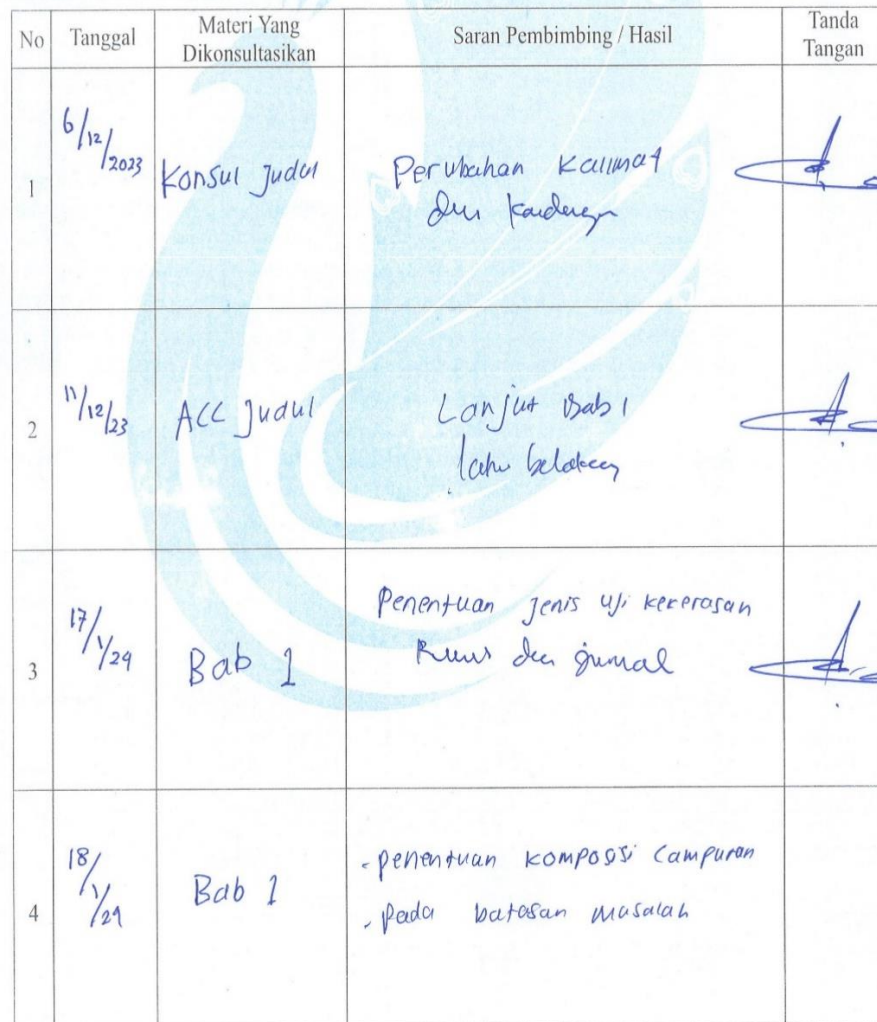 No Tanggal Materi Yang Dikonsultasikan Saran Pembimbing / Hasil Tanda Tangan
1 6/12/2023 Konsul Judul Perubahan Kalimat
2 11/12/23 ACC Judul Lanjut Bab 1
3 17/1/24 Bab 1 Penentuan Jenis Uji kekerasan
4 18/1/24 Bab 1 - Penentuan komposisi Campuran
- Pada batasan masalah